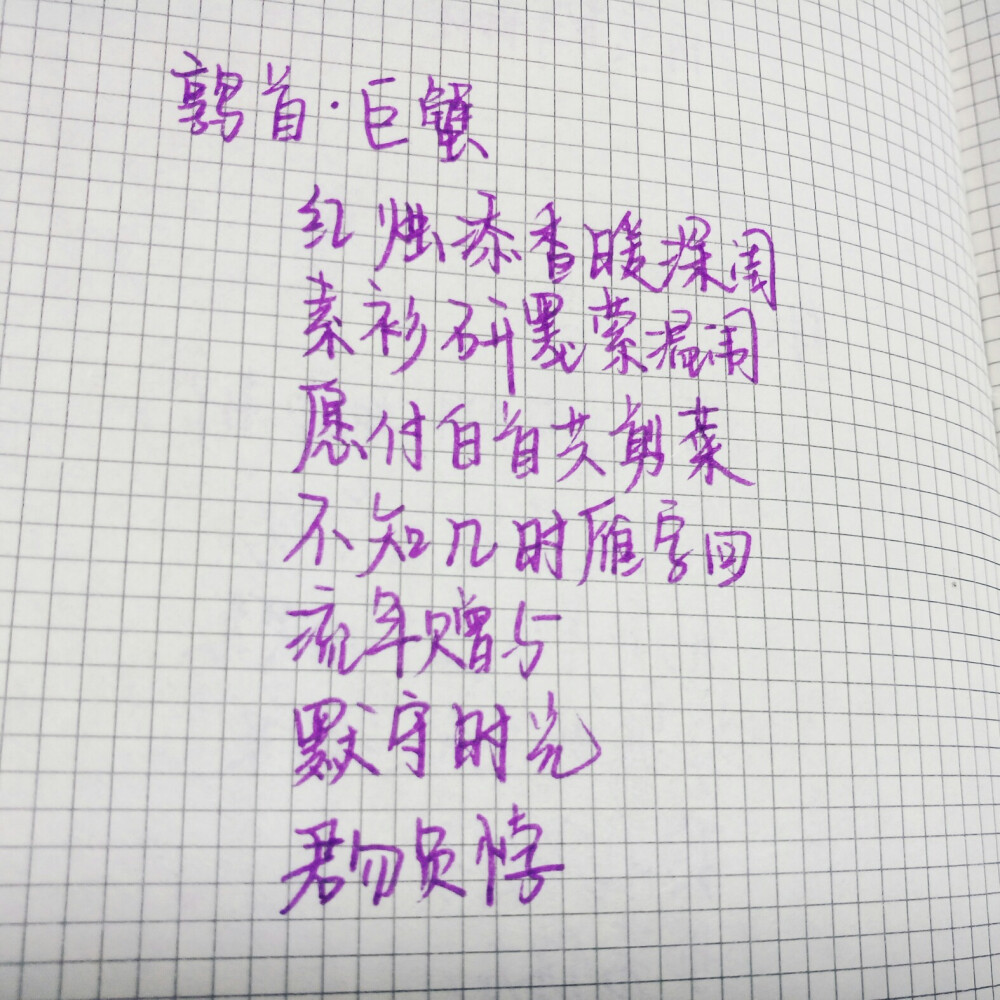 鹑首·巨蟹
红烛添香暖深闺
素衫研墨萦温闱
愿付白首共剪菜
不知几时雁字回
流年赠与
默守时光
君勿负悖